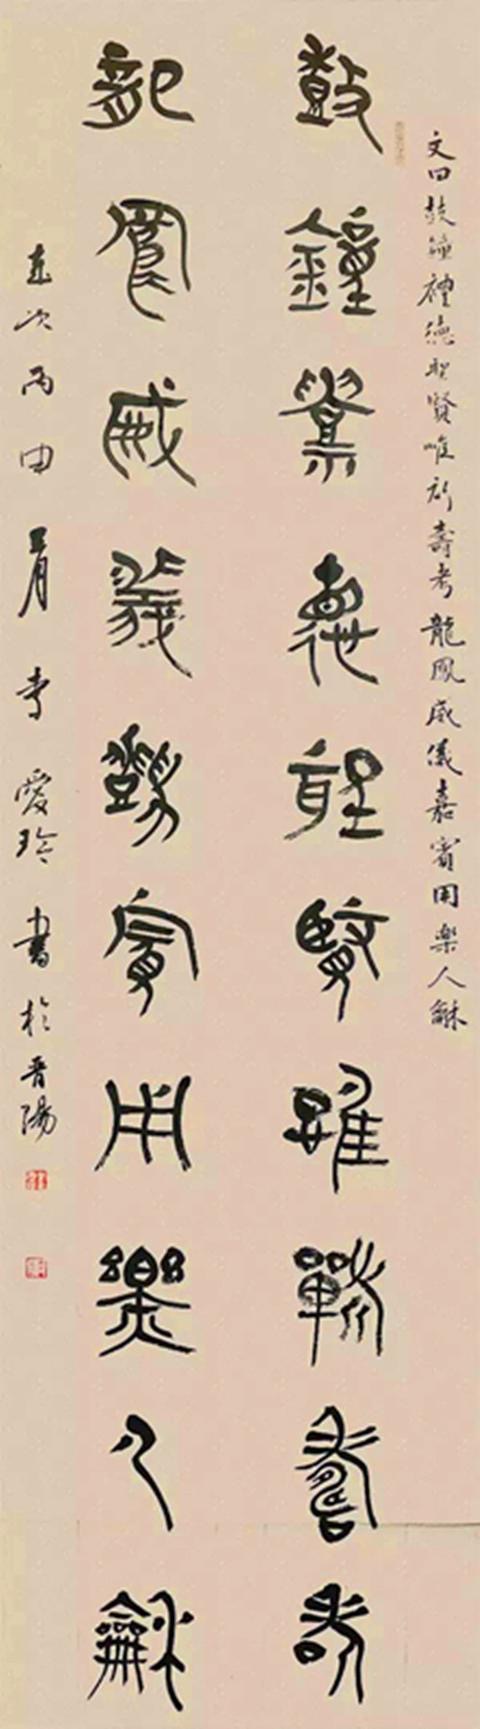 文曰鼓鐘禮德聖賢唯祈壽考龍鳳威儀嘉賓用樂人龢
鼓鐘禮德聖賢唯祈壽考
龍鳳威儀嘉賓用樂人龢
歲次丙申月李愛玲書於晋陽